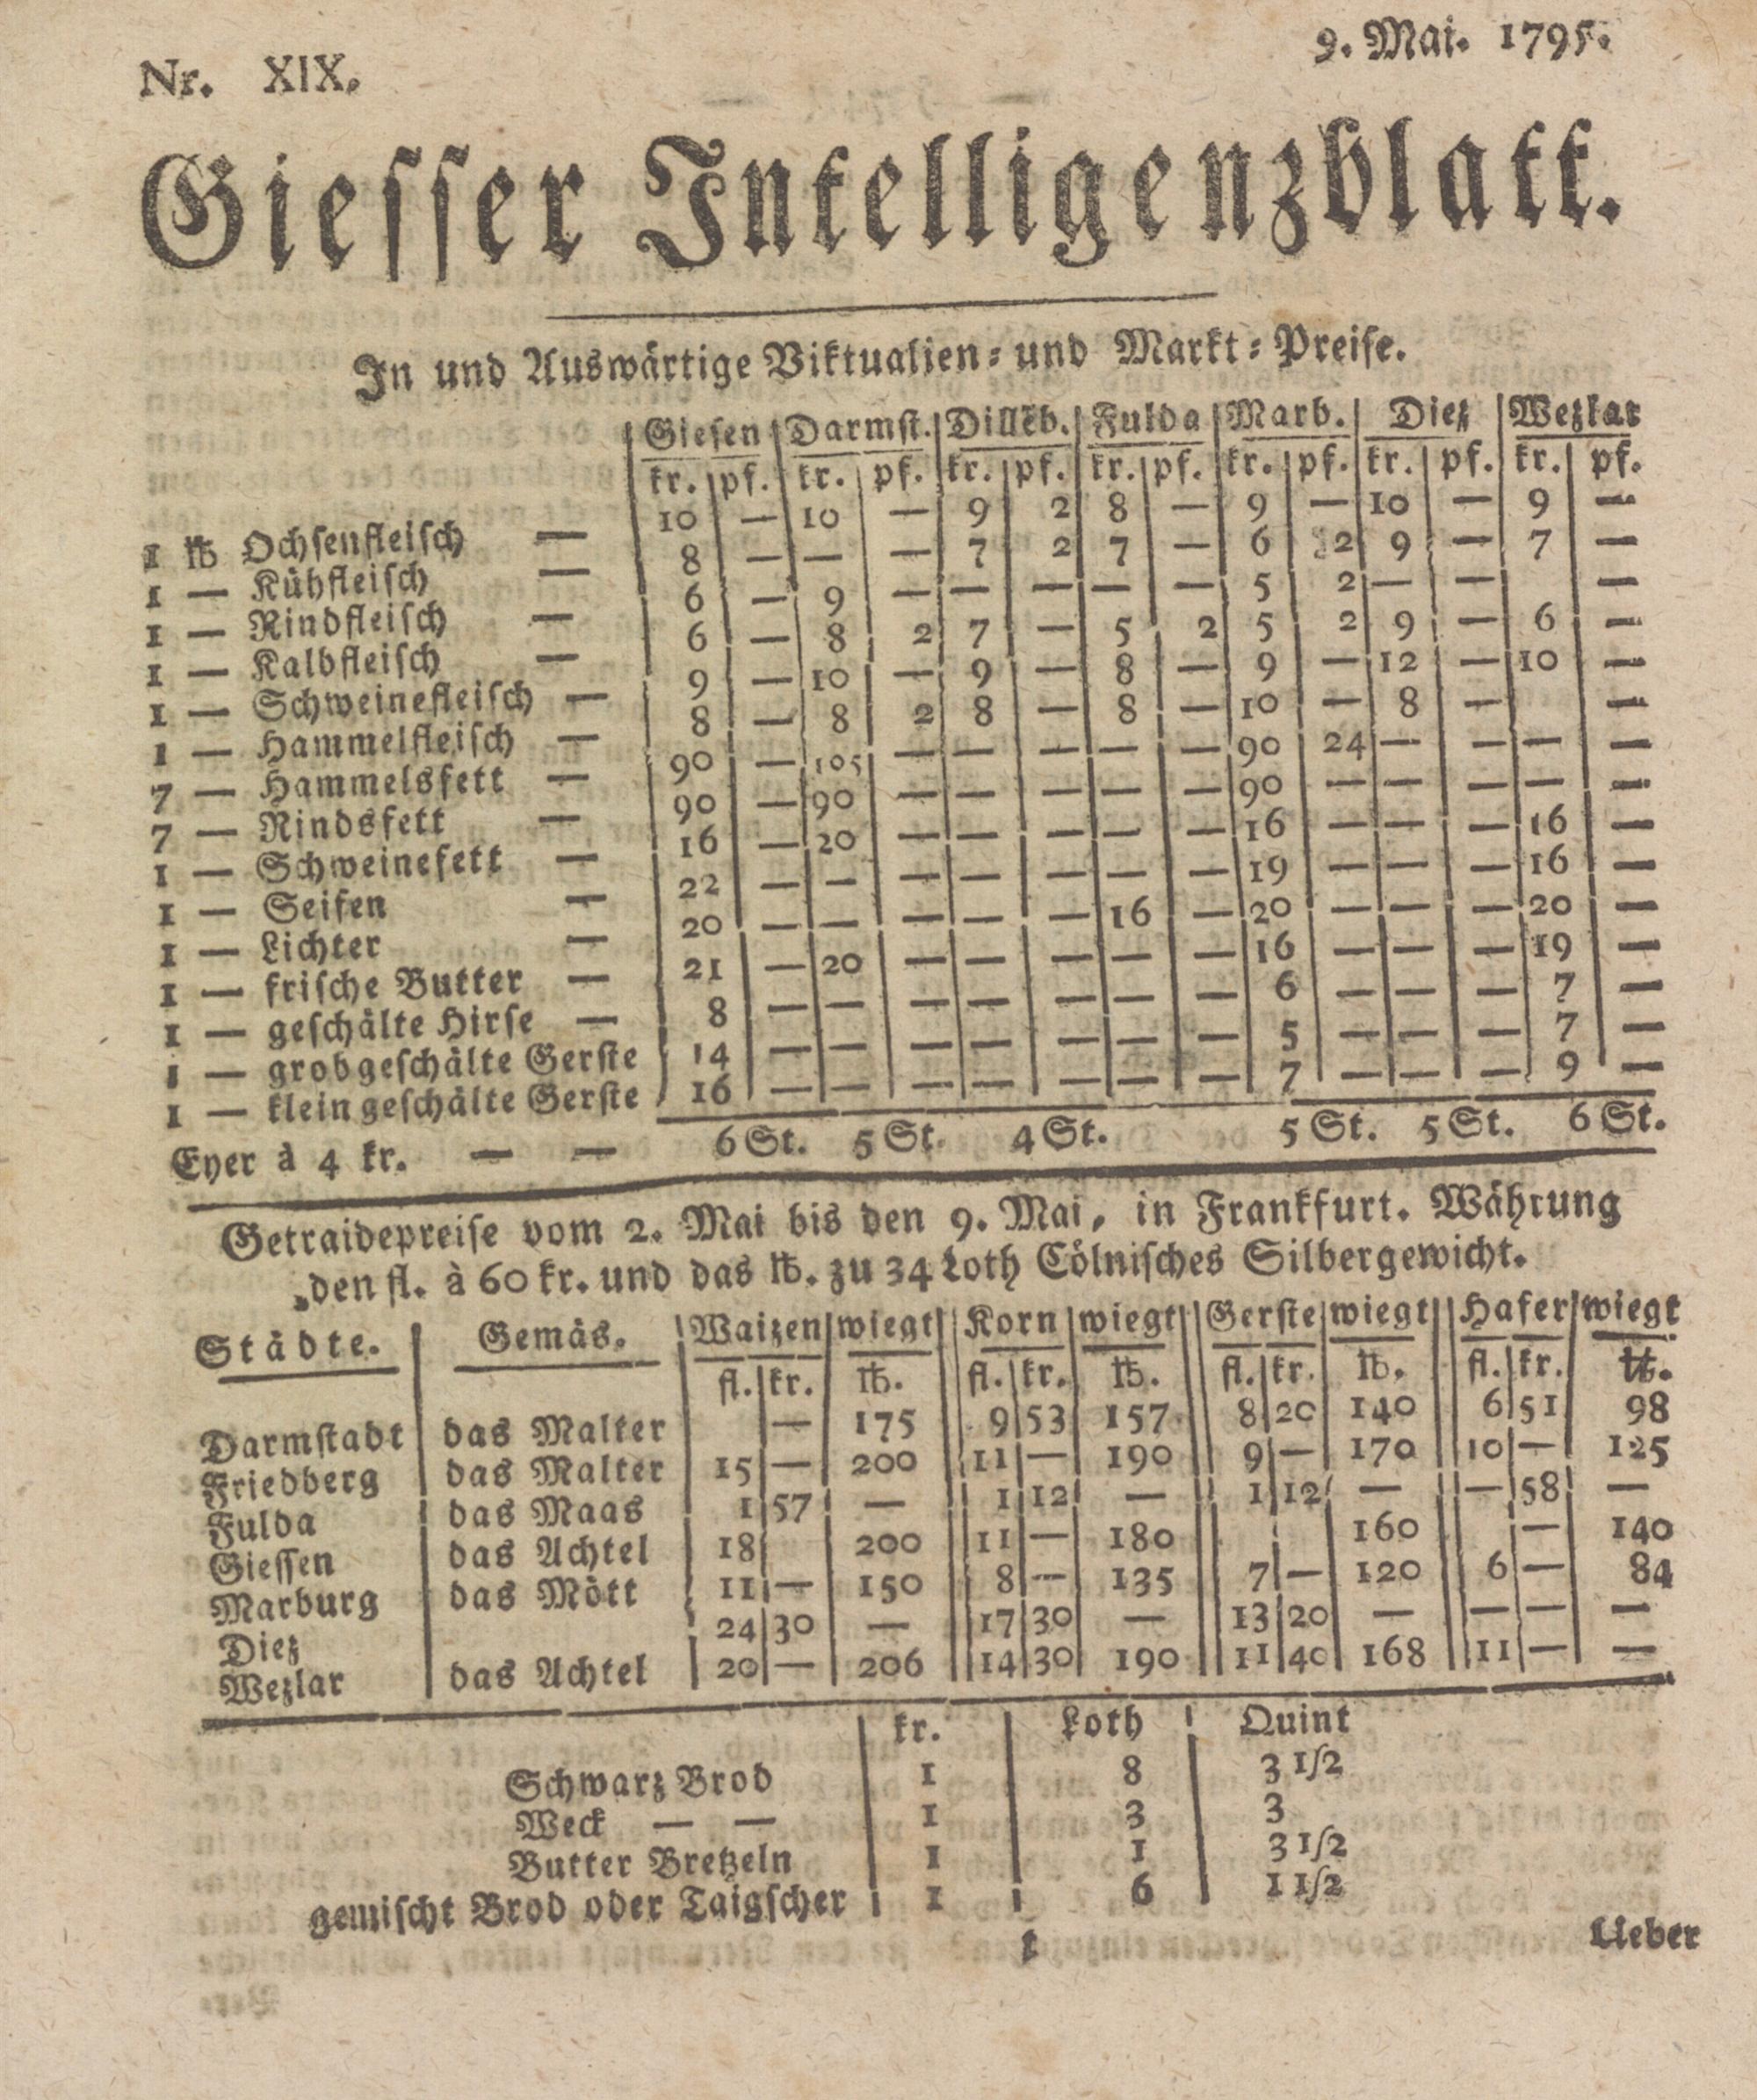 Nr. XIX. 9. Mai. 1795.
Giesser Intelligenzblatt.
In und Auswärtige Viktualien- und Markt-Preise.
Giesen Darmst. Dillēb. Fulda Marb. Diez Wezlar
kr. pf. kr. pf. kr. pf. kr. pf. kr. pf. kr. pf. kr. pf.
1 ℔ Ochsenfleisch — 10 — 10 — 9 2 8 — 9 — 10 — 9 —
1 — Kühfleisch — 8 — — — 7 2 7 — 6 2 9 — 7 —
1 — Rindfleisch — 6 — 9 — — — — — 5 2 — — —
1 — Kalbfleisch — 6 — 8 2 7 — 5 2 5 2 9 — 6 —
1 — Schweinefleisch — 9 — 10 — 9 — 8 — 9 — 12 — 10 —
1 — Hammelfleisch — 8 — 8 2 8 — 8 — 10 — 8 — —
7 — Hammelsfett — 90 — 105 — — — — — 90 24 — — — —
7 — Rindsfett — 90 — 90 — — — — — 90 — — — — —
1 — Schweinefett — 16 — 20 — — — — — 16 — — — 16 —
1 — Seifen — 22 — — — — — — — 19 — — — 16 —
1 — Lichter — 20 — — — — — 16 — 20 — — — 20 —
1 — frische Butter — 21 — 20 — — — — — 16 — — — 19 —
1 — geschälte Hirse — 8 — — — — — — — 6 — — — 7 —
1 — grobgeschälte Gerste 14 — — — — — — — 5 — — — 7 —
1 — klein geschälte Gerste 16 — — — — — — — 7 — — — 9 —
Eyer à 4 kr. — — 6 St. 5 St. 4 St. 5 St. 5 St. 6 St.
Getraidepreise vom 2. Mai bis den 9. Mai, in Frankfurt. Währung
den fl. à 60 kr. und das ℔. zu 34 Loth Cölnisches Silbergewicht.
Städte. Gemäs. Waizen wiegt Korn wiegt Gerste wiegt Hafer wiegt
fl. kr. ℔. fl. kr. ℔. fl. kr. ℔. fl. kr. ℔.
Darmstadt das Malter — 175 9 53 157 8 20 140 6 51 98
Friedberg das Malter 15 — 200 11 — 190 9 — 170 10 — 125
Fulda das Maas 1 57 — 1 12 — 1 12 — — 58 —
Giessen das Achtel 18 200 11 — 180 160 — 140
Marburg das Mött 11 — 150 8 — 135 7 — 120 6 — 84
Diez 24 30 — 17 30 — 13 20 — — — —
Wezlar das Achtel 20 — 206 14 30 190 11 40 168 11 — —
kr. Loth Quint
Schwarz Brod 1 8 3 1/2
Weck — — 1 3 3
Butter Bretzeln 1 1 3 1/2
gemischt Brod oder Taigscher 1 6 1 1/2
t Ueber